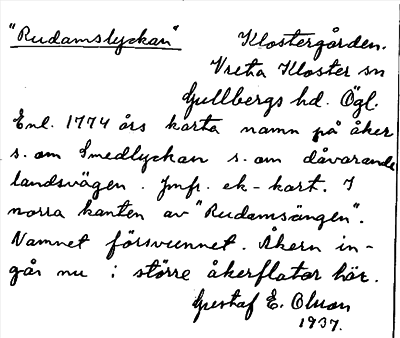 "Rudamslyckan"
Klostergården.
Vreta Kloster sn
Gullbergs hd. Ögl.
Enl. 1774 års karta namn på åker
s. om Smedlyckan s. om dåvarande
landsvägen. Jmfr. ek-kart. I
norra kanten av "Rudamsängen".
Namnet försvunnet. Åkern in-
går nu i större åkerflator här.
Gustaf E. Olson
1937.